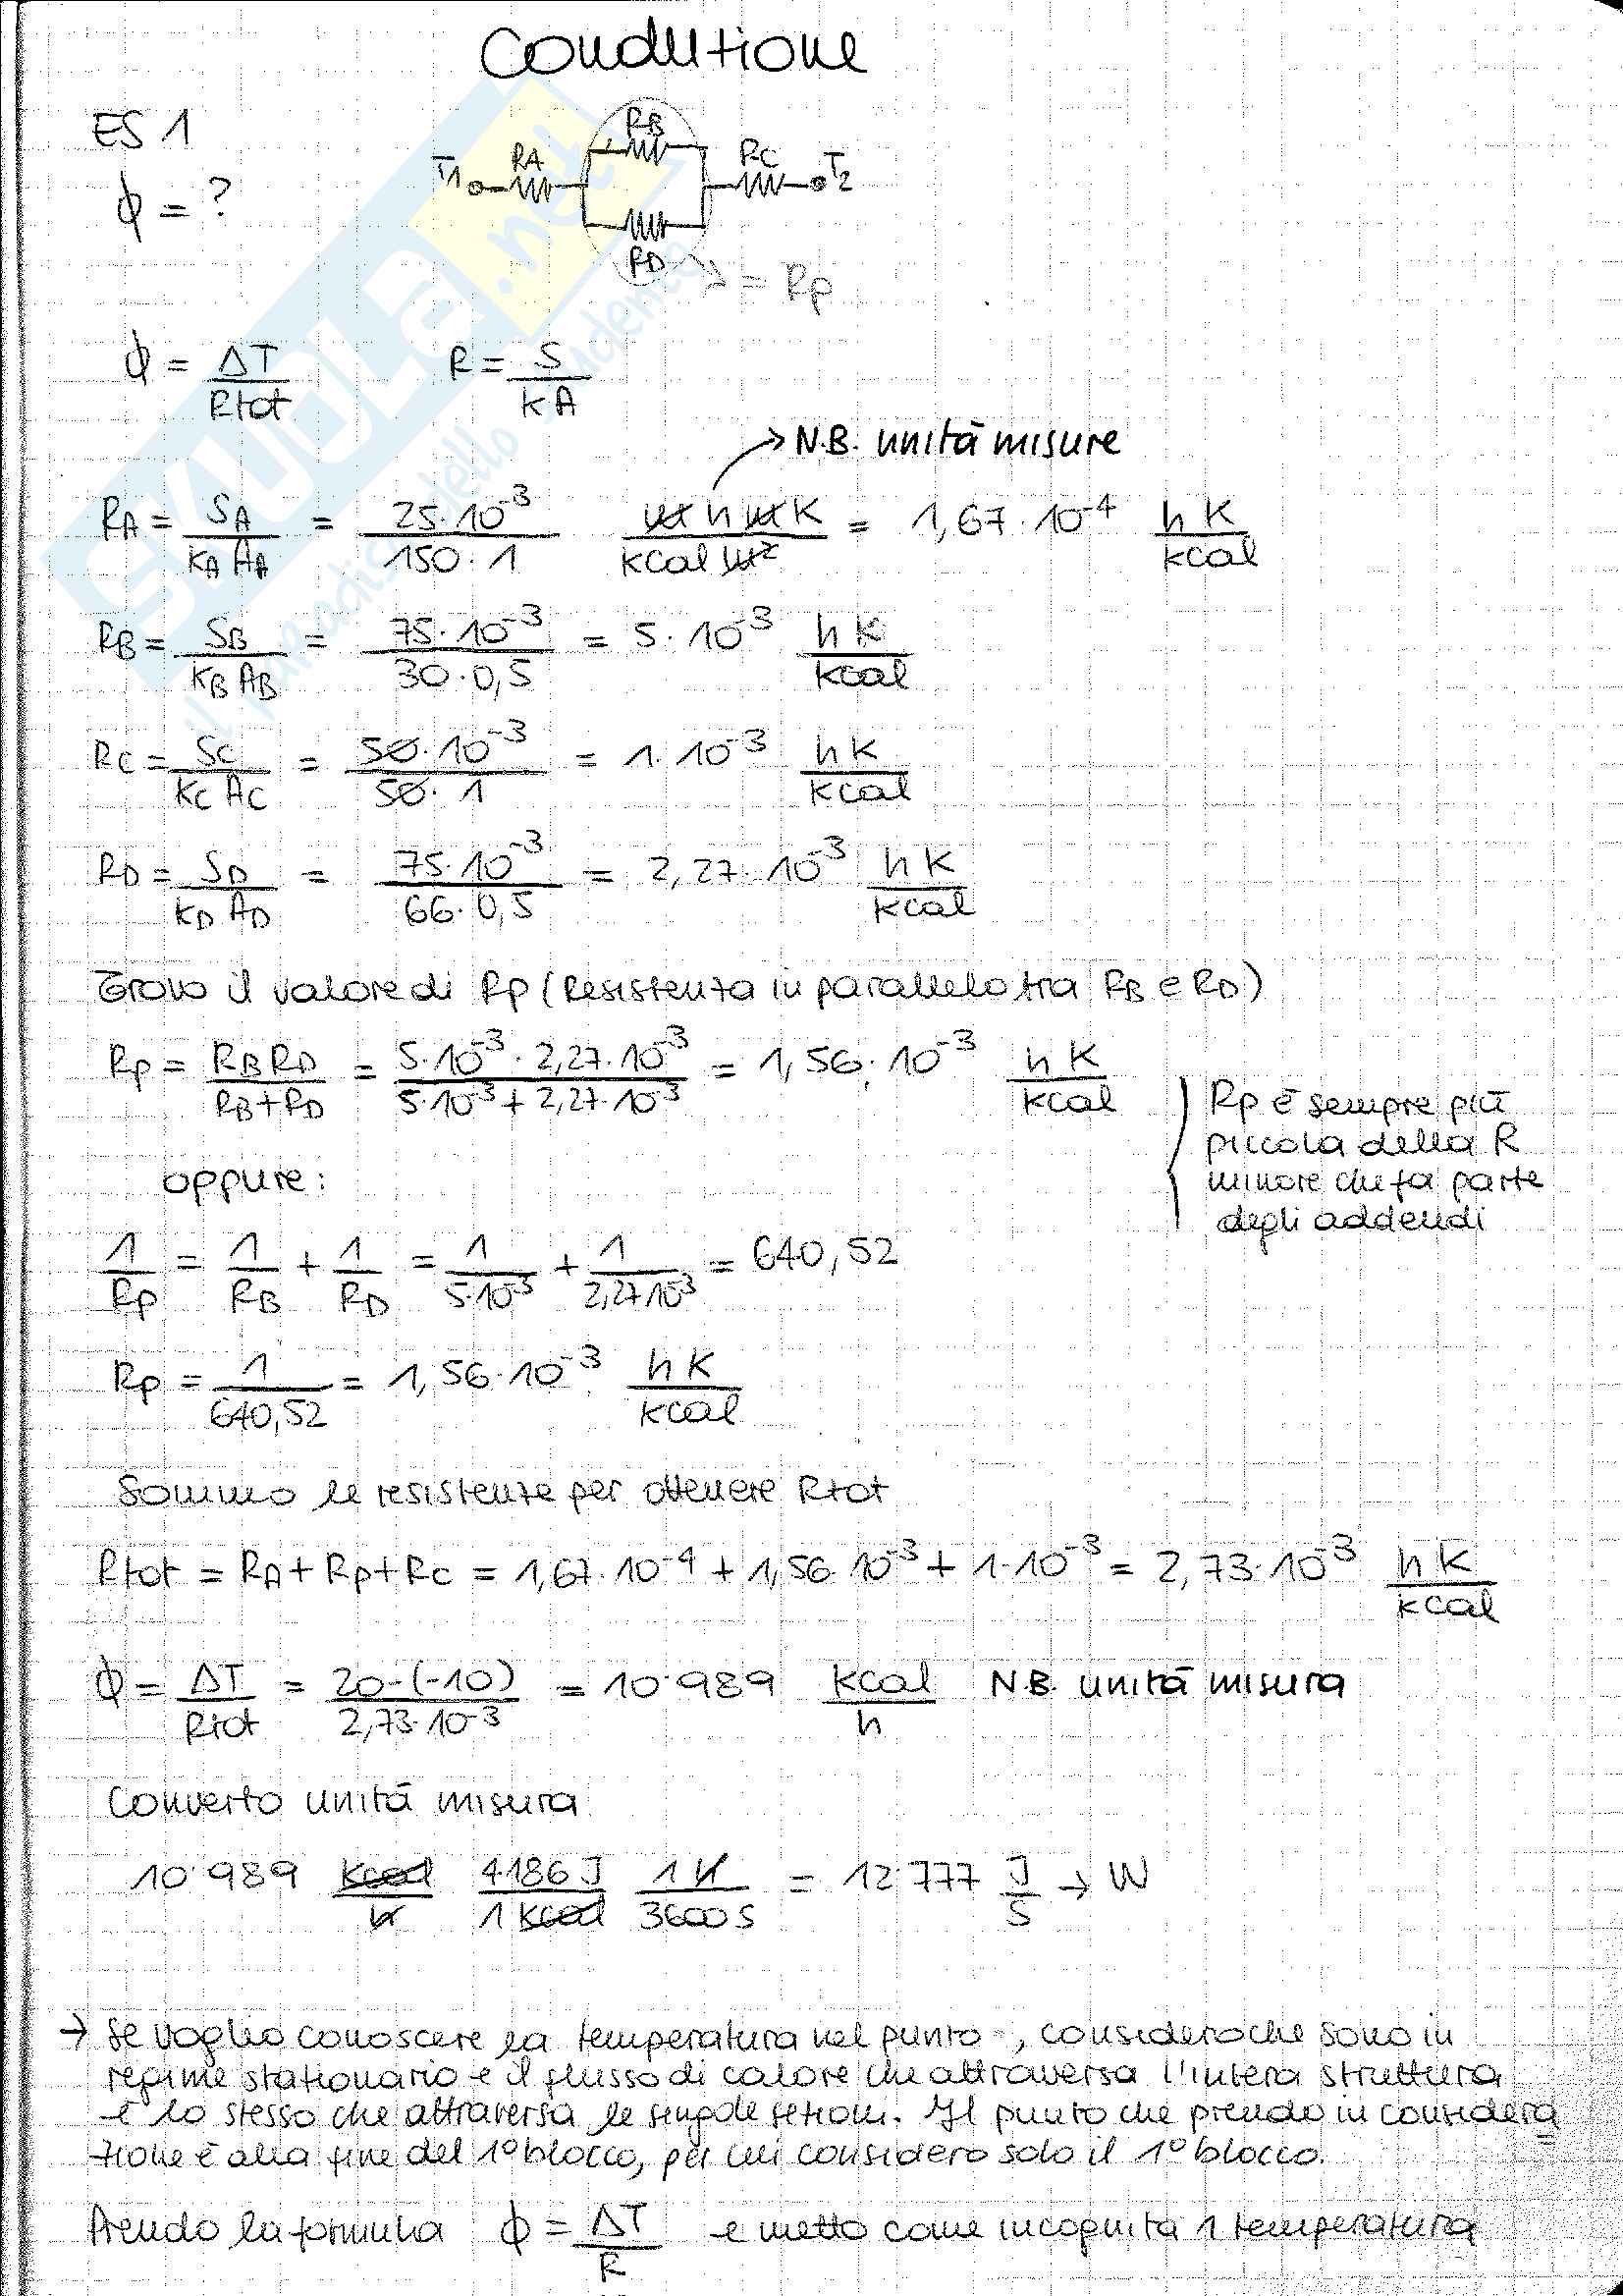 Conduzione
ES 1
RB
T1 RA RC T2
ϕ = ?
RD
= Rp
ϕ = ΔT / Rtot    R = S / kA
→ N.B. unità misure
RA = SA / kA AA = 25·10⁻³ / 150·1  m h m K / kcal m² = 1,67·10⁻⁴ h K / kcal
RB = SB / kB AB = 75·10⁻³ / 30·0,5 = 5·10⁻³ h K / kcal
RC = SC / kC AC = 50·10⁻³ / 50·1 = 1·10⁻³ h K / kcal
RD = SD / kD AD = 75·10⁻³ / 66·0,5 = 2,27·10⁻³ h K / kcal
Trovo il valore di Rp (Resistenza in parallelo tra RB e RD)
Rp = RB RD / RB+RD = 5·10⁻³·2,27·10⁻³ / 5·10⁻³+2,27·10⁻³ = 1,56·10⁻³ h K / kcal
Rp è sempre più
piccola della R
minore che fa parte
degli addendi
oppure:
1/Rp = 1/RB + 1/RD = 1/5·10⁻³ + 1/2,27·10⁻³ = 640,52
Rp = 1/640,52 = 1,56·10⁻³ h K / kcal
Sommo le resistenze per ottenere Rtot
Rtot = RA+Rp+RC = 1,67·10⁻⁴ + 1,56·10⁻³ + 1·10⁻³ = 2,73·10⁻³ h K / kcal
ϕ = ΔT / Rtot = 20-(-10) / 2,73·10⁻³ = 10·989 kcal / h N.B. unità misura
Converto unità misura
10·989 kcal / h  4186 J / 1 kcal  1 h / 3600 s = 12·777 J / s → W
→ Se voglio conoscere la temperatura nel punto -, considero che sono in
regime stazionario e il flusso di calore che attraversa l'intera struttura
è lo stesso che attraversa le singole sezioni. Il punto che prendo in considera
zione è alla fine del 1º blocco, per cui considero solo il 1º blocco.
Prendo la formula ϕ = ΔT / R e metto come incognita 1 temperatura